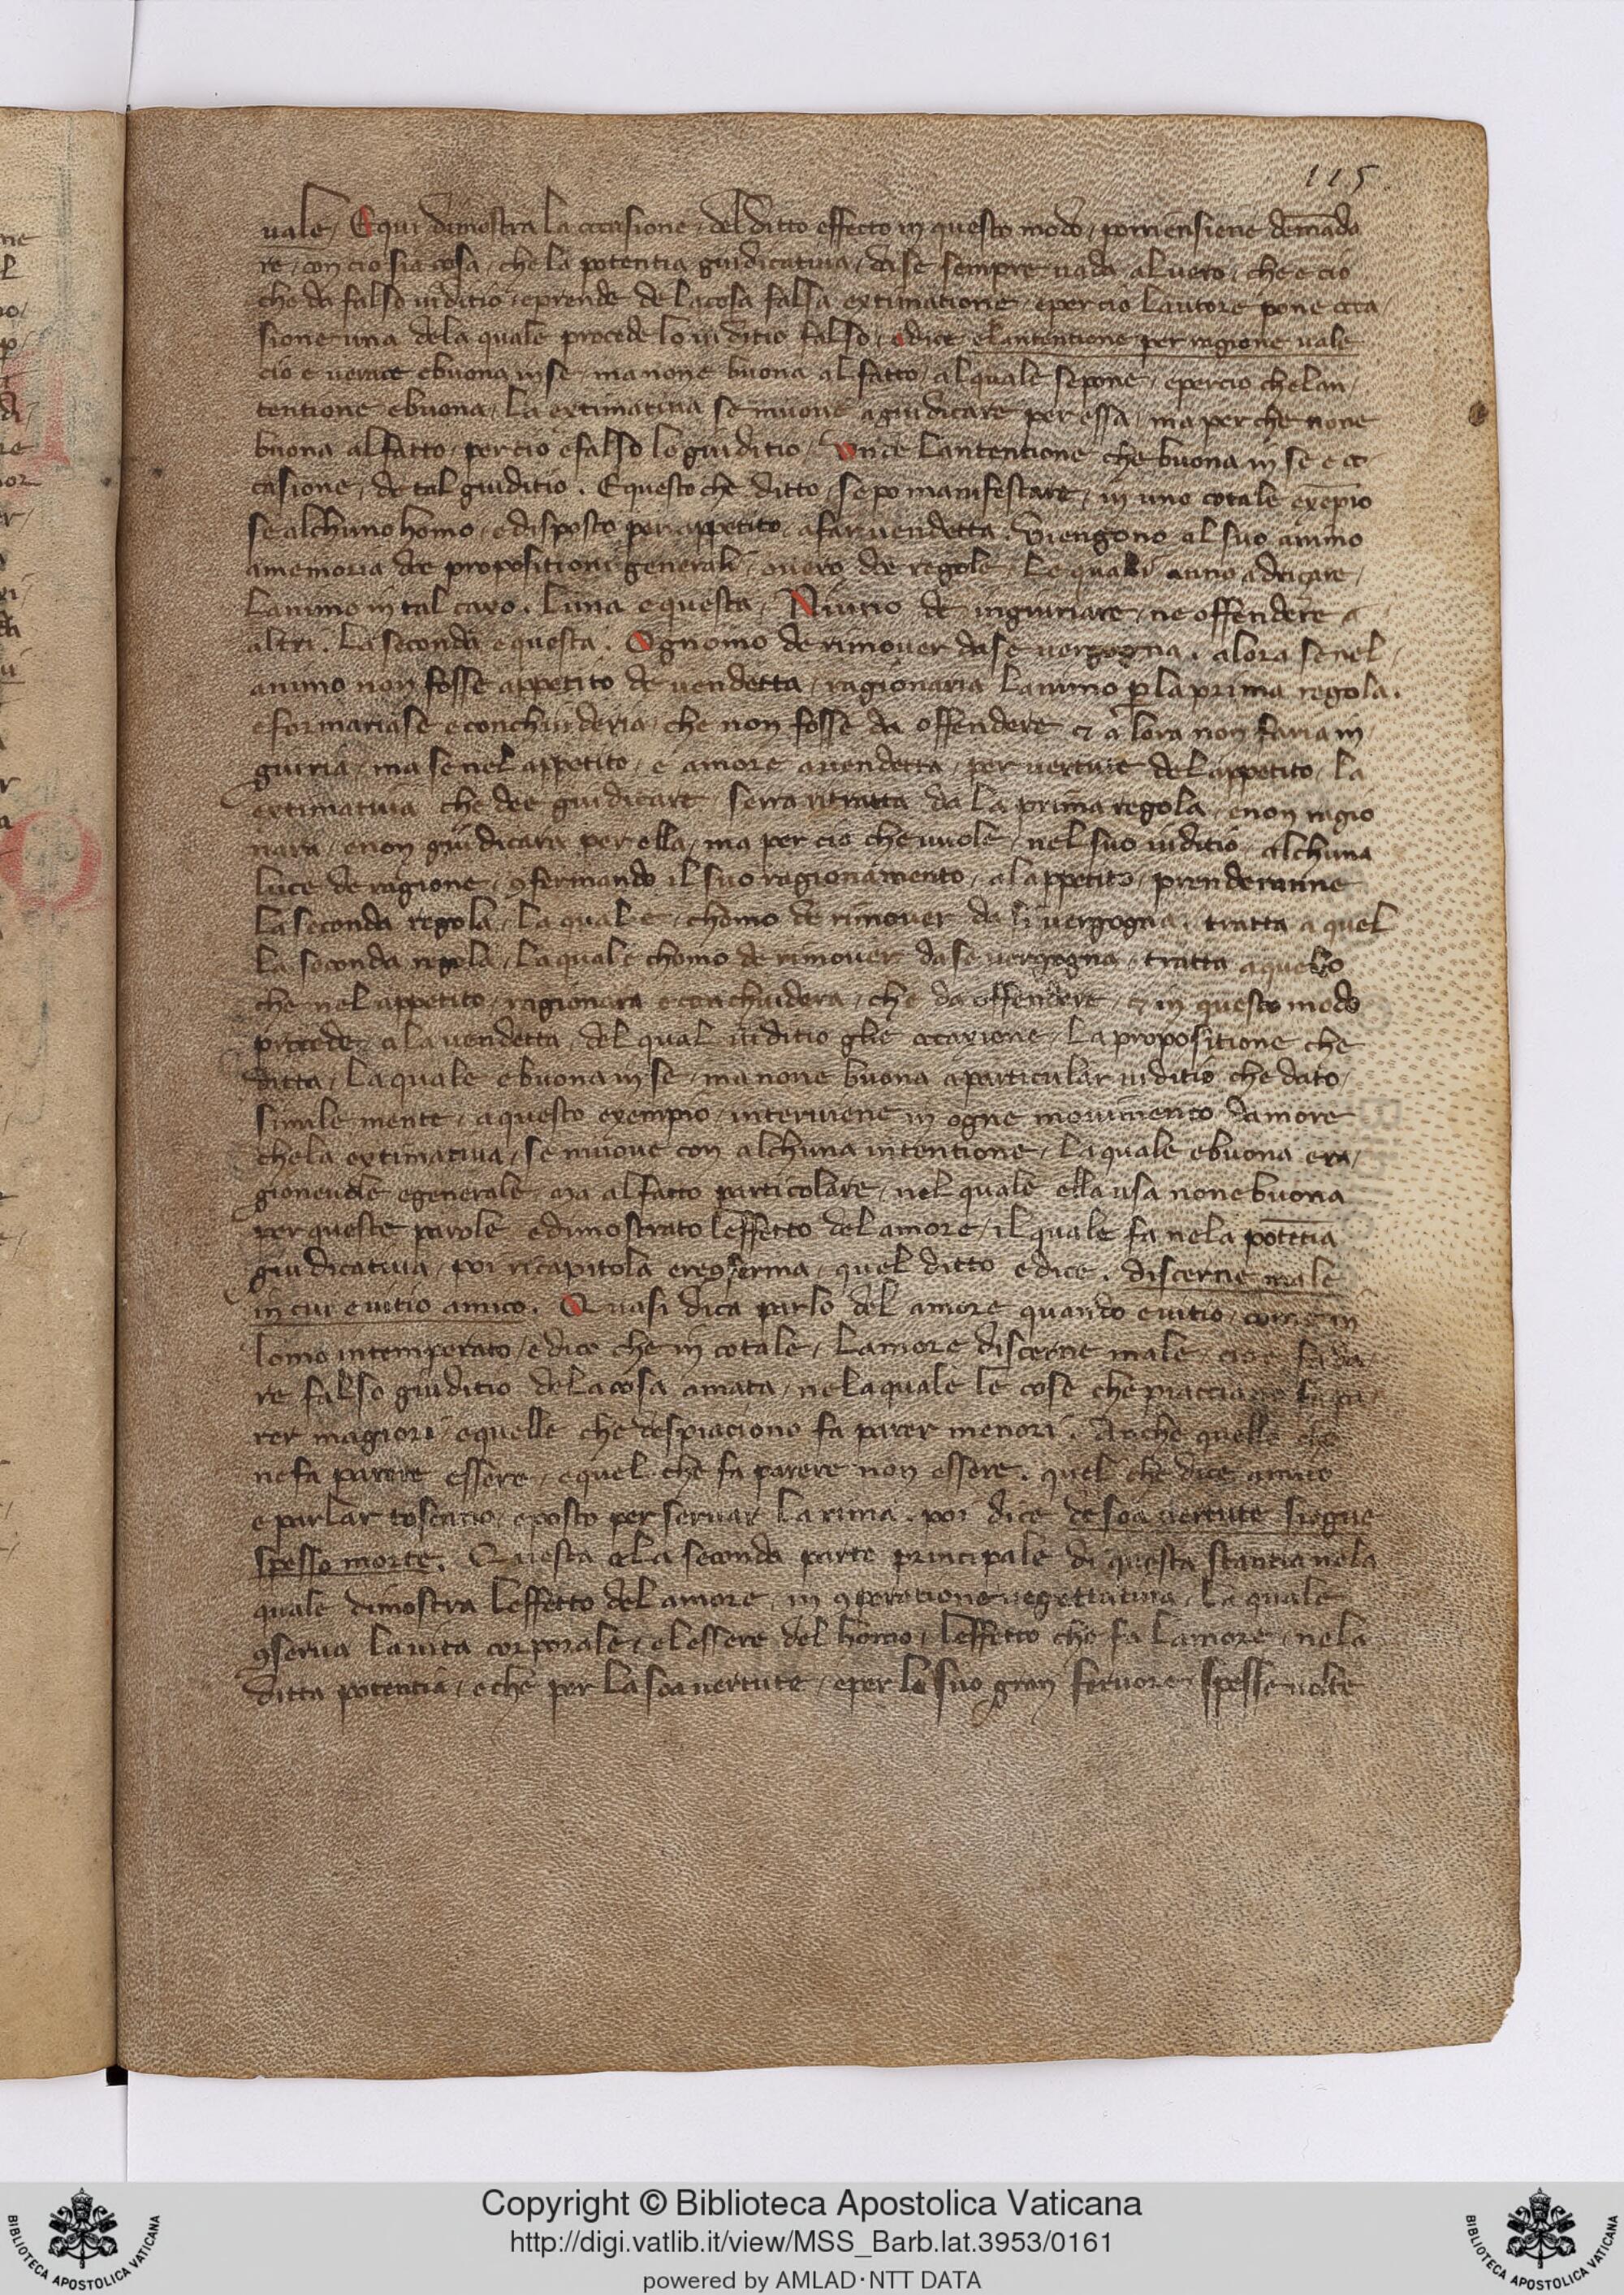 115
uale / Equi dimostra la occasione / del ditto effecto in questo modo / porriensiene demāda
re / con cio sia cosa / che la potentia giudicatiua / di se sempre uada al uero / che e cio
che da falso iuditio / eprende de la cosa falsa extimatione / epercio lautore pone occa /
sione una dela quale procede lo iuditio falso / edice / elantentione per ragione uale
cio e uerace ebuona in se / ma none buona al fatto / al quale se pone / epercio che lan /
tentione ebuona / la extimatiua se muoue a giudicare per essa / ma per che none
buona al fatto / percio e falso lo giuditio / Unde lantentione che buona in se e oc /
casione / de tal giuditio . Equesto che ditto / se po manifestare / in uno cotale exēpio
se alchuno homo / e disposto per appetito / a far uendetta . Viengono al suo animo
amemoria doe propositioni generali / ouero doe regole / le quali anno adriçare /
lanimo in tal caxo . Luna equesta / Niuno de ingiuriare / ne offendere a
altri . La seconda e questa . Ognomo de rimouer da se uergogna . alora se nel /
animo non fosse appetito de uendetta / ragionaria lanimo ꝑ la prima regola .
e formariase e conchiuderia / che non fosse da offendere ⁊ alora non faria in /
giuria / ma se nel appetito / e amore auendetta / per uertute del appetito / la
extimatiua che dee giudicare / serra ritratta da la prima regola / enon ragio
nara / enon giudicara per ella / ma per cio che uuole / nel suo iuditio / alchuna
luce de ragione / ꝯfermando il suo ragionamento / al appetito / prenderanne
La seconda regola / la qual e / chomo de rimouer da si uergogna . tratta a quel
La seconda regola / la qual e chomo de rimouer da se uergogna / tratta aquello
che nel appetito / ragionara e conchiudera / che da offendere / ⁊ in questo modo
procede / a la uendetta / del qual iuditio glie occaxione / la propositione che
ditta / la quale ebuona in se / ma none buona aparticular iuditio che dato /
simile mente / aquesto exempio / interuiene in ogne mouimento damore
che la extimatiua / se muoue con alchuna intentione / la quale ebuona era /
gioneuole egenerale / ma al fatto particolare / nel quale ella usa none buona
per queste parole edimostrato leffetto del amore / il quale fa nela potētia
giudicatiua / poi ricapitola ereꝯferma / quel ditto edice . discerne male
in cui euitio amico . Quasi dica parlo del amore quando euitio / come in
lomo intemperato / edice che in cotale / lamore discerne male / cioe fa da /
re falso giuditio de la cosa amata / nela quale le cose che piacciano fa pa /
rer magiori / equelle che despiaciono fa parer menori . Anche quello che
ne fa parere essere / equel che fa parere non essere . quel che dice amico
e parlar toscano / eposto per seruar la rima . poi dice de soa uertute siegue
spesso morte . Questa ela seconda parte principale di questa stantia nela
quale dimostra leffetto del amore / in ꝯperatione uegettatiua / la quale
ꝯserua la uita corporale / elessere del homo / leffetto che fa lamore / nela
ditta potentia / eche per la soa uertute / eper lo suo gran feruore / spesse uolte
Copyright © Biblioteca Apostolica Vaticana
http://digi.vatlib.it/view/MSS_Barb.lat.3953/0161
powered by AMLAD·NTT DATA
BIBLIOTECA APOSTOLICA VATICANA
BIBLIOTECA APOSTOLICA VATICANA